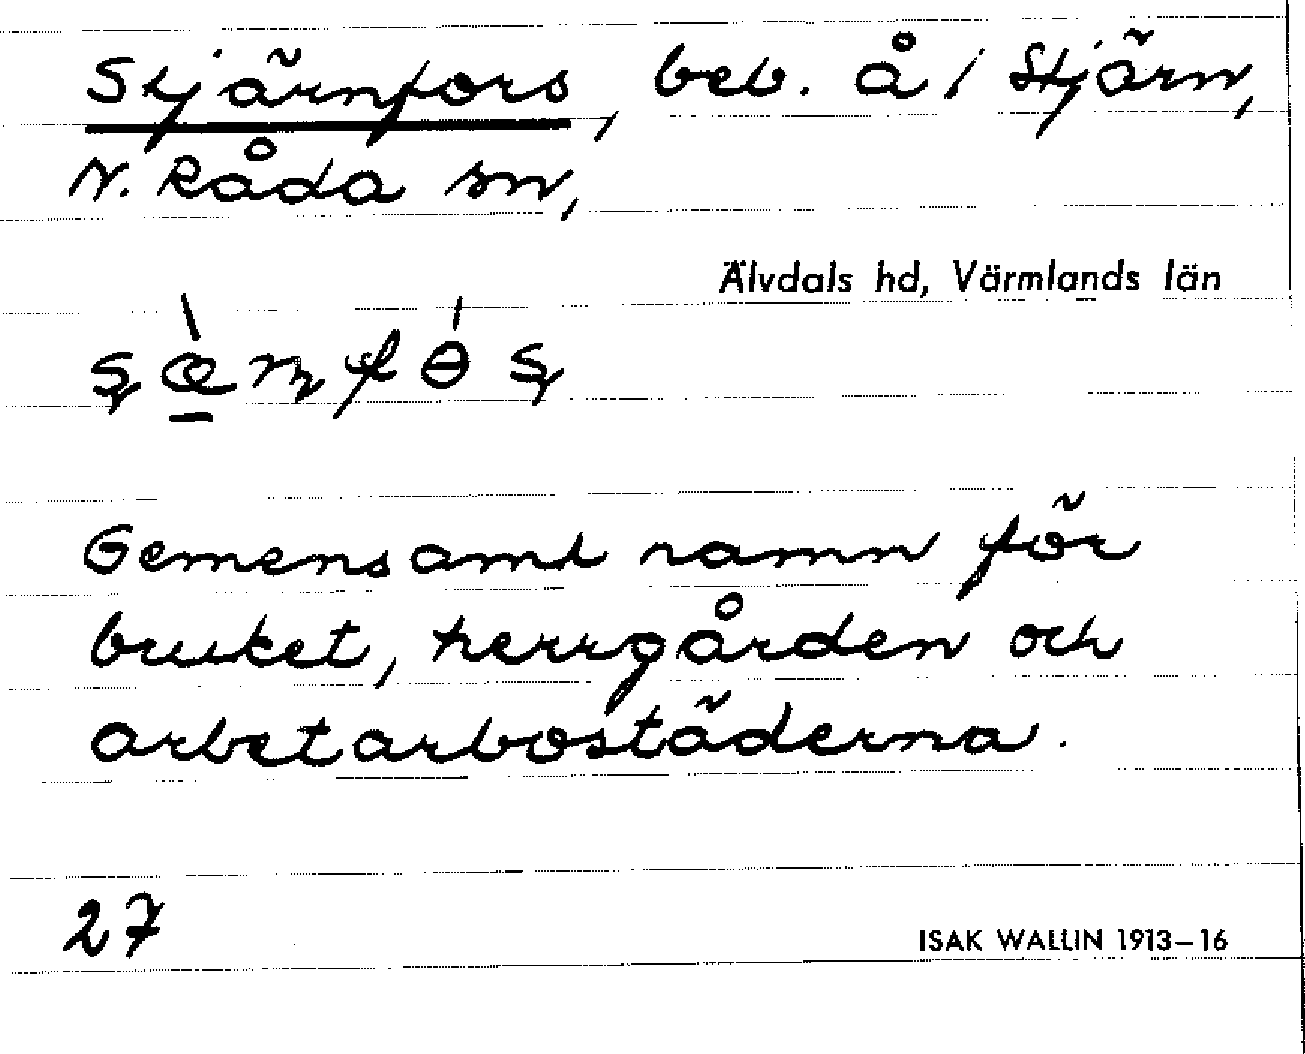 Stjärnfors, beb. å / Stjärn,
N. Råda sn,
Älvdals hd, Värmlands län
Gemensamt namn för
bruket, herrgården och
arbetarbostäderna.
27
ISAK WALLIN 1913–16